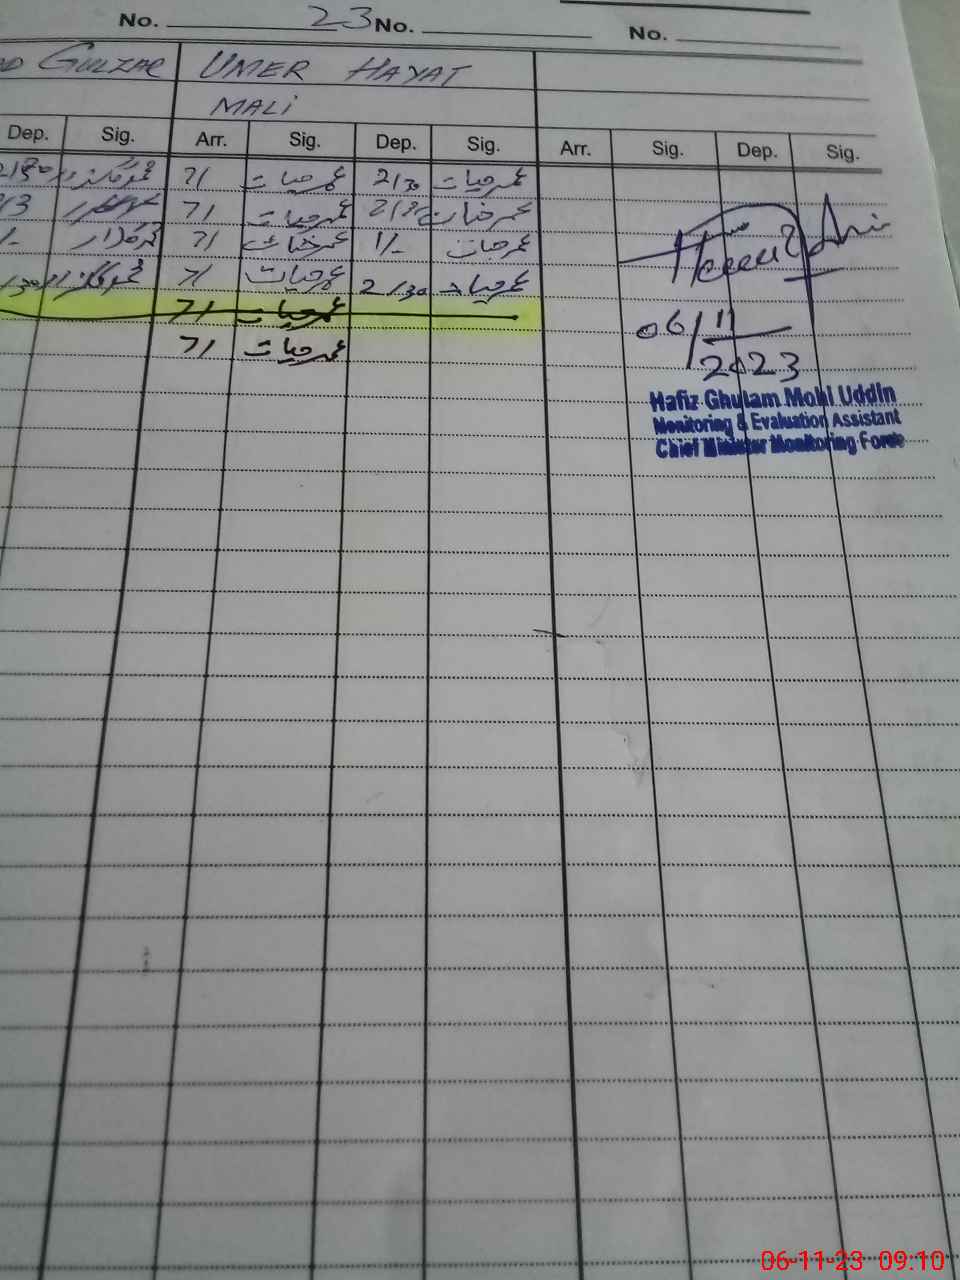 No. 23 No. No.
GULZAR UMER HAYAT
MALI
Dep. Sig. Arr. Sig. Dep. Sig. Arr. Sig. Dep. Sig.
7/ عمر حیات 2/30 عمر حیات
7/ عمر حیات عمر حیات
7/ عمر حیات 1/- عمر حیات
7/ عمر حیات 2/30 عمر حیات
7/ عمر حیات
7/ عمر حیات
06/11
2023
Hafiz Ghulam Mohi Uddin
Monitoring & Evaluation Assistant
Chief Minister Monitoring Force
06-11-23 09:10